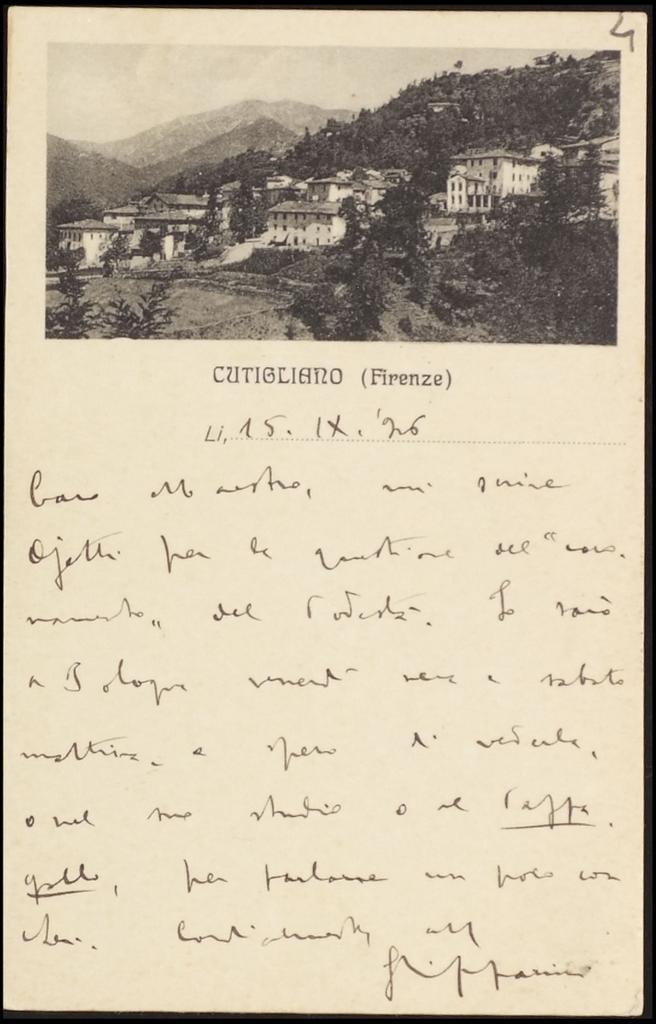 4
CUTIGLIANO (Firenze)
Li, 15. IX. '26
Caro Maestro, mi scrive
Ojetti per la questione del "coro-
namento" del Podestà. Io sarò
a Bologna venerdì sera e sabato
mattina, e spero di vederla,
o nel suo studio o al Pappa-
gallo, per parlarne un poco con
Lei. Cordialmente